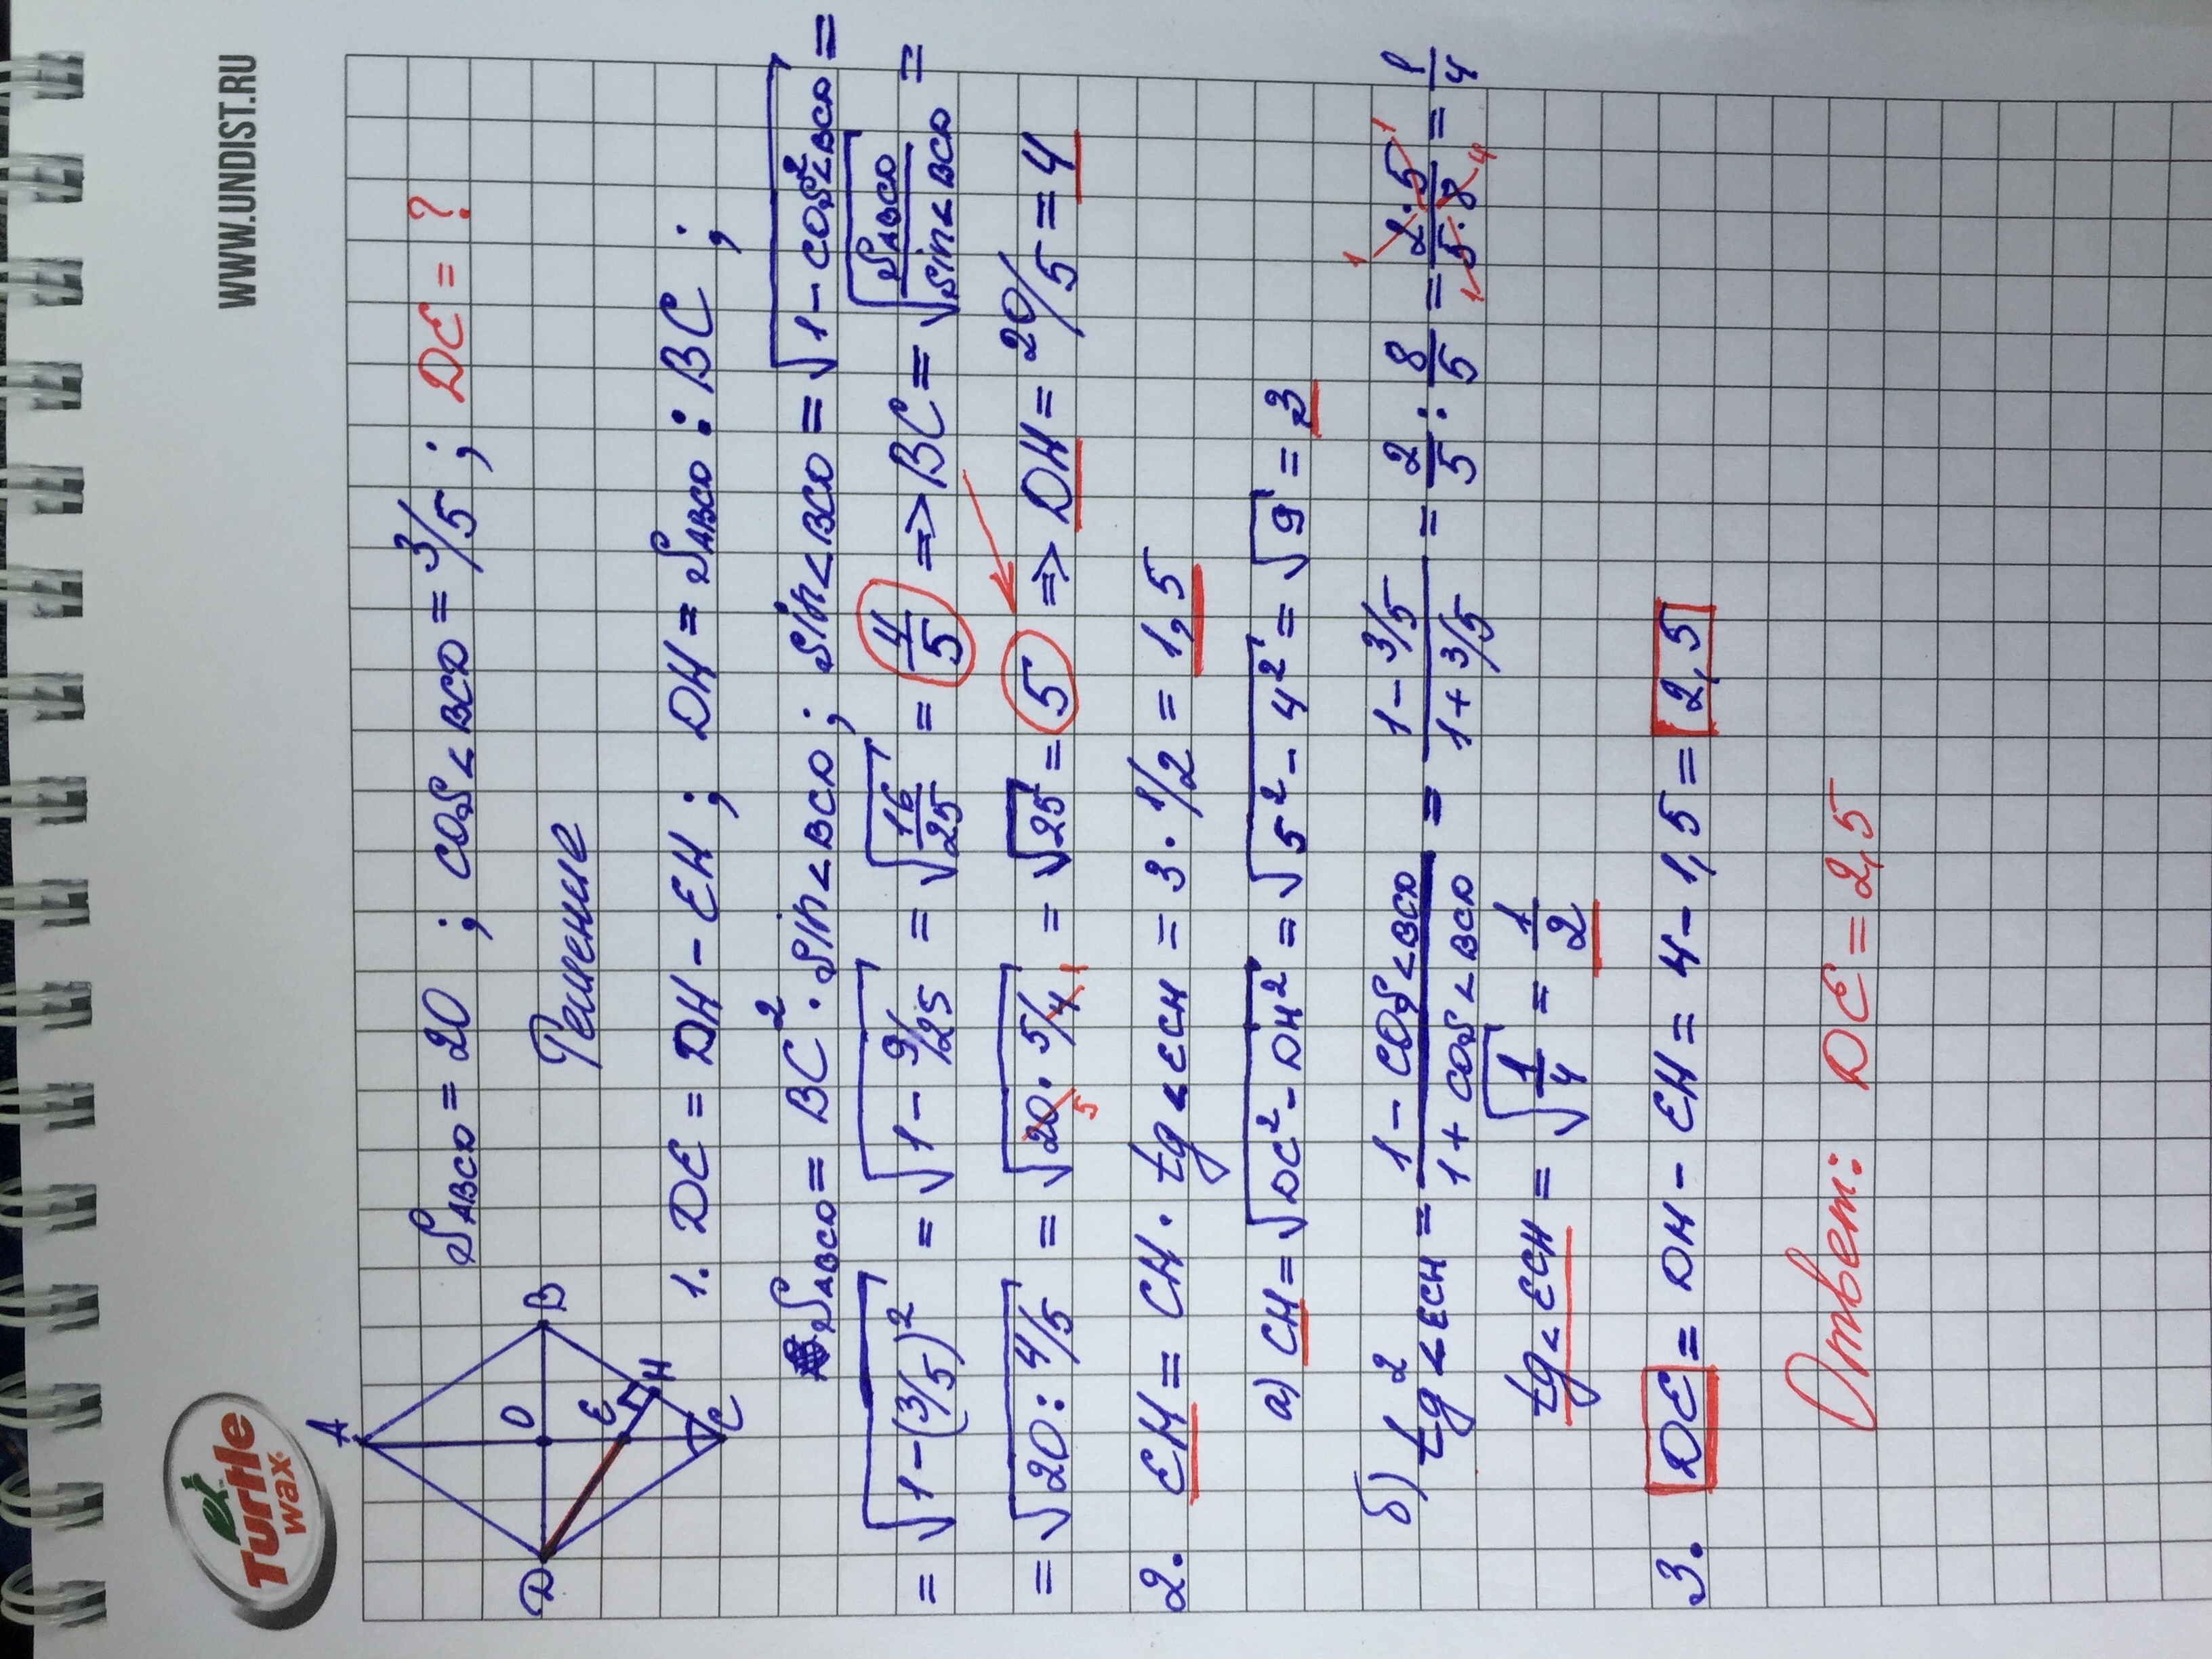 WWW.UNDIST.RU
Turtle
wax
A
D
O
B
E
H
C
S ABCD = 20 ; cos∠BCD = 3/5 ; DE = ?
Решение
1. DE = DH − EH ; DH = S ABCD : BC ;
S ABCD = BC² · sin∠BCD ; sin∠BCD = √(1 − cos²∠BCD) =
= √(1 − (3/5)²) = √(1 − 9/25) = √(16/25) = 4/5 => BC = √(S ABCD / sin∠BCD) =
= √(20 : 4/5) = √(20 · 5/4) = √25 = 5 => DH = 20/5 = 4
5 1
2. EH = CH · tg∠ECH = 3 · 1/2 = 1,5
а) CH = √(DC² − DH²) = √(5² − 4²) = √9 = 3
б) tg²∠ECH = (1 − cos∠BCD)/(1 + cos∠BCD) = (1 − 3/5)/(1 + 3/5) = 2/5 : 8/5 = (2 · 5)/(5 · 8) = 1/4
1 1
1 4
tg∠ECH = √(1/4) = 1/2
3. DE = DH − EH = 4 − 1,5 = 2,5
Ответ: DE = 2,5